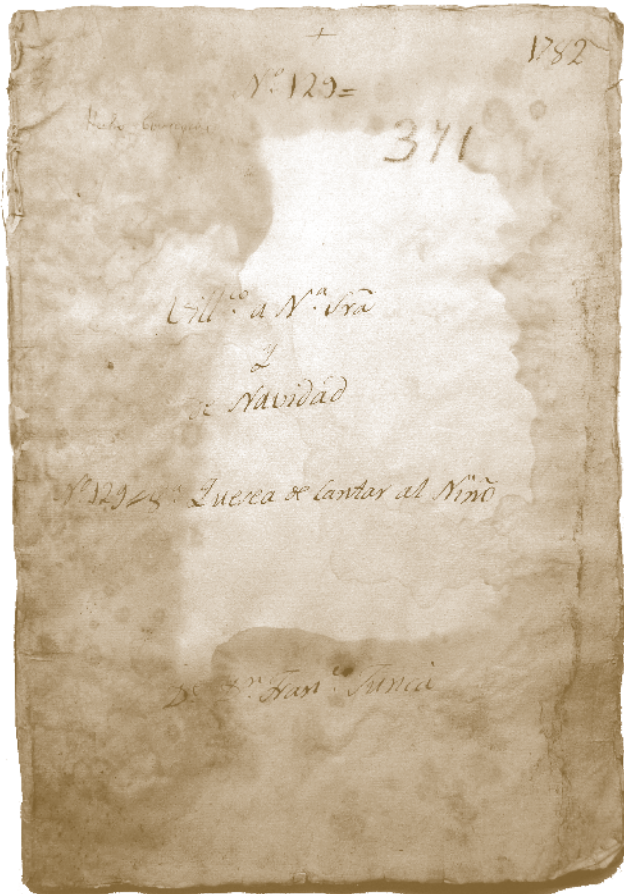 1782
Nº 129=
371
Vill.co a N.a Srã
Y
de Navidad
Nº 129 Quesea de Cantar al Niño
De Dn Fran.co Juncà